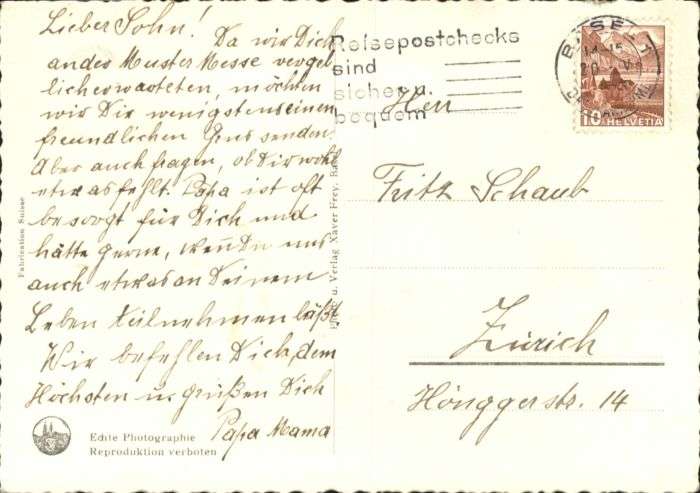 Lieber Sohn!
Da wir Dich
an des Muster Messe vergeb
lich erwarteten, möchten
wir Dir wenigstens einen
freundlichen Grus senden.
Aber auch fragen, ob Dir wohl
etwas fehlt. Papa ist oft
besorgt für Dich und
hätte gerne, wenn Du uns
auch etwas an Deinem
Leben teilnehmen läßt
Wir befehlen Dich, dem
Höchsten u. grüßen Dich
Papa Mama
Echte Photographie
Reproduktion verboten
Fabrication Suisse
u. Verlag Xaver Frey, Basel
Reisepostchecks
sind
sicher u.
bequem
BASEL 1
10 HELVETIA
Herr
Fritz Schaub
Zürich
Hönggerstr. 14